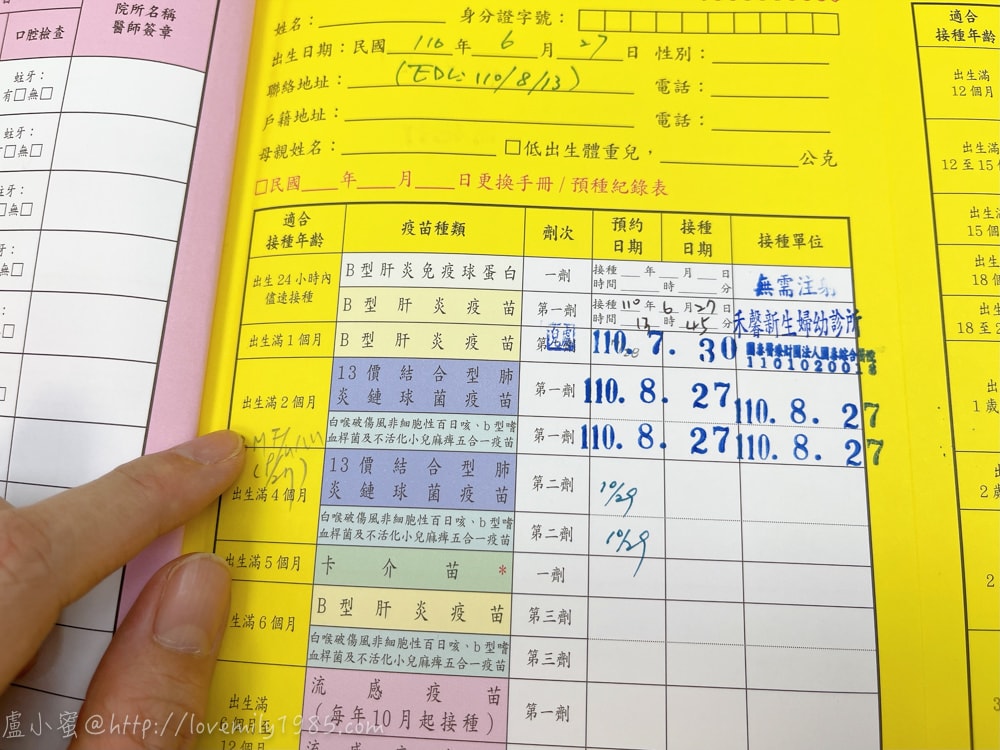 院所名稱
醫師簽章
口腔檢查
蛀牙：
有□無□
蛀牙：
□無□
牙：
□無□
姓名：
身分證字號：
出生日期：民國 110 年 6 月 27 日 性別：
聯絡地址： (EDC: 110/8/13) 電話：
戶籍地址： 電話：
母親姓名： □低出生體重兒， 公克
□民國 年 月 日更換手冊/預種紀錄表
適合
接種年齡
疫苗種類
劑次
預約
日期
接種
日期
接種單位
出生24小時內
儘速接種
B型肝炎免疫球蛋白
一劑
接種 年 月 日
時間 時 分
無需注射
B型肝炎疫苗
第一劑
接種 110 年 6 月 27 日
時間 13 時 45 分
禾馨新生婦幼診所
出生滿1個月
B型肝炎疫苗
110. 7. 30
國泰醫療財團法人國泰綜合醫院
1101020018
出生滿2個月
13價結合型肺
炎鏈球菌疫苗
第一劑
110. 8. 27
110. 8. 27
白喉破傷風非細胞性百日咳、b型嗜
血桿菌及不活化小兒麻痺五合一疫苗
第一劑
110. 8. 27
110. 8. 27
出生滿4個月
13價結合型肺
炎鏈球菌疫苗
第二劑
10/29
白喉破傷風非細胞性百日咳、b型嗜
血桿菌及不活化小兒麻痺五合一疫苗
第二劑
10/29
出生滿5個月
卡介苗*
一劑
生滿6個月
B型肝炎疫苗
第三劑
白喉破傷風非細胞性百日咳、b型嗜
血桿菌及不活化小兒麻痺五合一疫苗
第三劑
出生滿
個月
12個月
流感疫苗
(每年10月起接種)
第一劑
流感疫苗
適合
接種年齡
出生滿
12個月
出生滿
12至15個
出生滿
15個
出生
18
出生
18至2
出生
1歲
出生
2歲
盧小蜜@http://lovemily1985.com